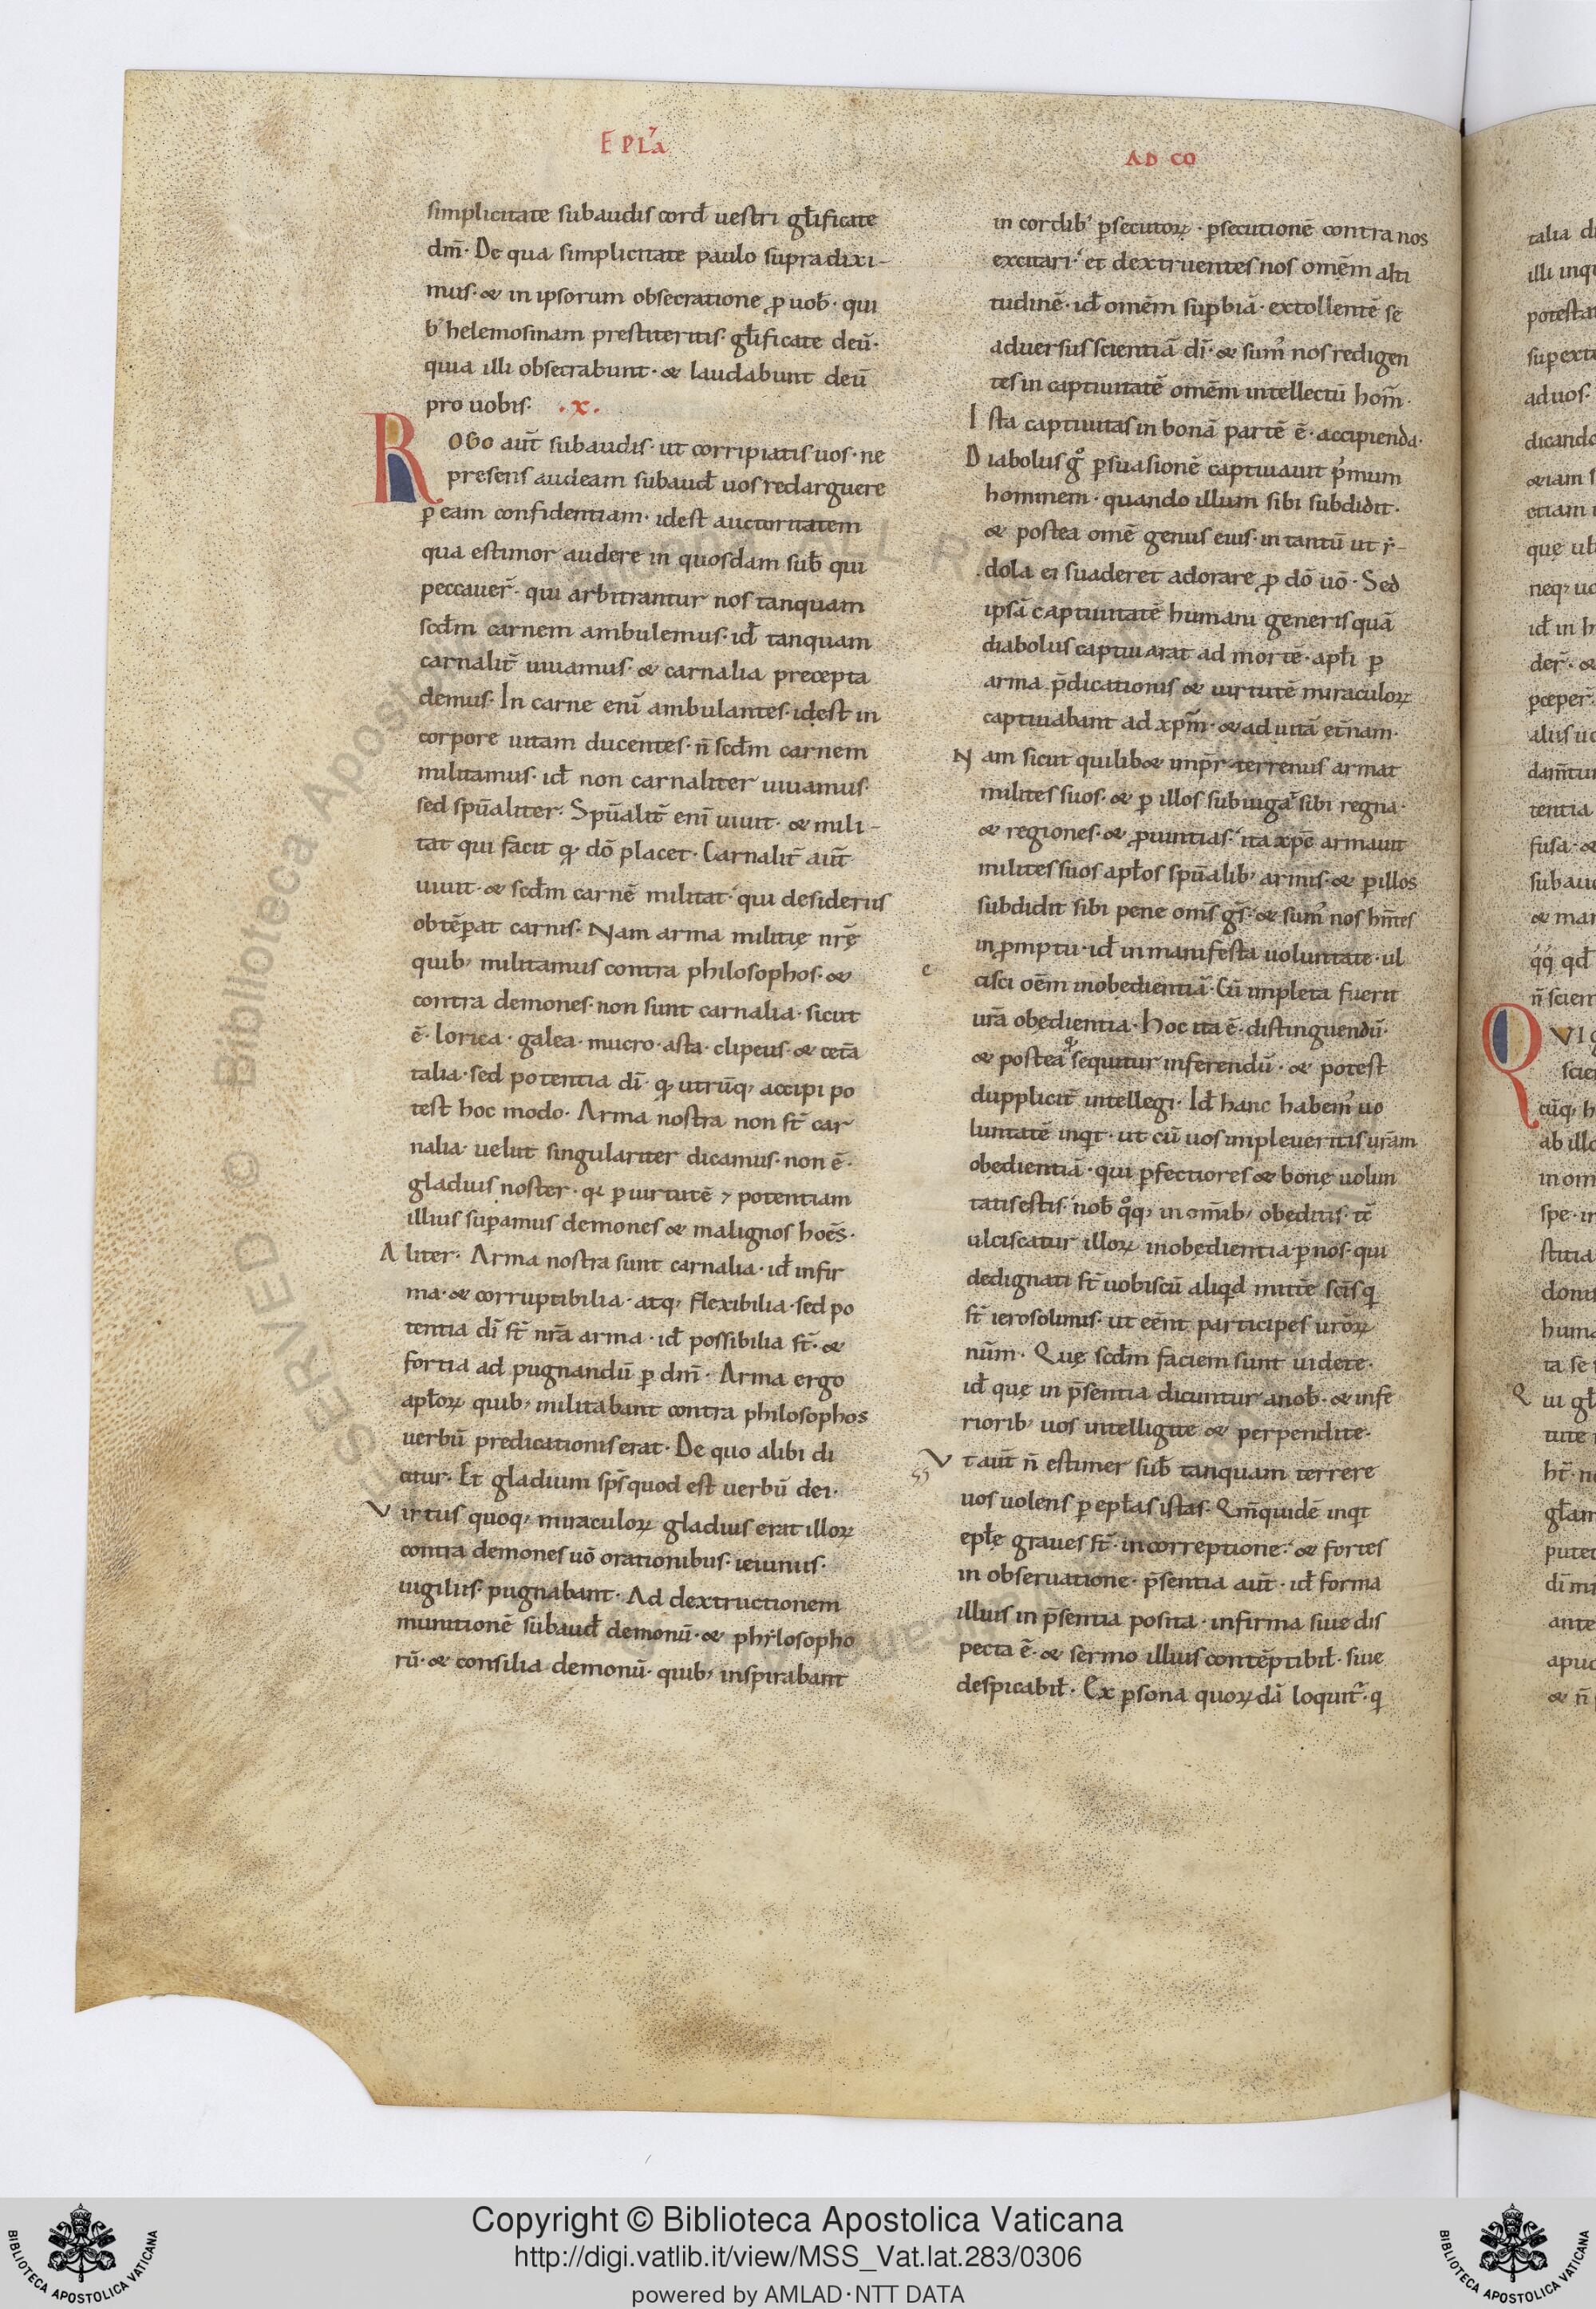 EPLA
simplicitate subaudis cord̄ uestri gl̄ificate
dm̄· De qua simplicitate paulo supradixi-
mus· & in ipsorum obsecratione ꝓ uob̄· qui
b' helemosinam prestiteritis· gl̄ificate deū·
quia illi obsecrabunt· & laudabunt deū
pro uobis· ·x·
ROGO aut̄ subaudis· ut corripiatis uos· ne
presens audeam subaud̄ uos redarguere
ꝑ eam confidentiam· idest auctoritatem
qua estimor audere in quosdam sub̄ qui
peccauer̄· qui arbitrantur nos tanquam
scd̄m carnem ambulemus· id̄ tanquam
carnalit̄ uiuamus· & carnalia precepta
demus· In carne eni̅ ambulantes· idest in
corpore uitam ducentes· n̄ scd̄m carnem
militamus· id̄ non carnaliter uiuamus·
sed spūaliter· Spūalit̄ eni̅ uiuit· & mili-
tat qui facit qḍ dō placet· Carnalit̄ aut̄
uiuit· & scd̄m carnē militat· qui desideriis
obtēꝑat carnis· Nam arma militię nrę̄
quib; militamus contra philosophos· &
contra demones· non sunt carnalia· sicut
ē· lorica· galea· mucro· asta· clipeus· & cetā
talia· sed potentia di̅· qḍ utrūq; accipi po
test hoc modo· Arma nostra non st̄ car
nalia· uelut singulariter dicamus· non ē·
gladius noster· qꝛ ꝑ uirtutē ⁊ potentiam
illius suꝑamus demones & malignos hoēs·
Aliter· Arma nostra sunt carnalia· id̄ infir
ma· & corruptibilia· atq; flexibilia· sed po
tentia di̅ st̄ nrā arma· id̄ possibilia st̄· &
fortia ad pugnandū ꝑ dm̄· Arma ergo
apl̄oꝝ quib; militabant contra philosophos
uerbū predicationis erat· De quo alibi di
citur· Et gladium sp̄s quod est uerbū dei·
Virtus quoq; miraculoꝝ gladius erat illoꝝ
contra demones uō orationibus· ieiuniis·
uigiliis· pugnabant· Ad dextructionem
munitionē subaud̄ demonū· & phylosopho
rū· & consilia demonū· quib; inspirabant
AD CO
in cordib' ꝑsecutoꝝ· ꝑsecutionē contra nos
excitari· et dextruentes nos omēm alti
tudinē· id̄ omēm suꝑbiā· extollentē se
aduersus scientiā di̅· & sum' nos redigen
tes in captiuitatē omēm intellectū hom̄·
Ista captiuitas in bonā partē ē· accipienda·
Diabolus gͦ ꝑsuasionē captiuauit pͥmum
hominem· quando illum sibi subdidit·
& postea omē genus eius· in tantū ut y-
dola ei suaderet adorare ꝓ dō uō· Sed
ipsā captiuitatē humani generis quā
diabolus captiuarat ad mortē· apl̄i ꝑ
arma p̄dicationis & uirtutē miraculoꝝ
captiuabant ad xpm̄· & ad uitā et̄nam·
Nam sicut quilib& imp̄r terrenus armat
milites suos· & ꝑ illos subiugat̄ sibi regna·
& regiones· & ꝓuintias· ita xpc̄ armauit
milites suos apl̄os spūalib; armis· & ꝑ illos
subdidit sibi pene oms̄ gs̄· & sum' nos hn̄tes
in ꝓmptu· id̄ in manifesta uoluntate· ul
cisci oēm inobedientiā· Cū impleta fuerit
urā obędientia· Hoc ita ē· distinguendū·
& postea sequitur inferendū· & potest
dupplicit̄ intellegi· Id̄ hanc habem' uo
luntatē inqͥt· ut cū uos impleueritis urām
obedientiā· qui ꝑfectiores & bonę uolun
tatis estis· nob̄ qͦq; in om̄ib; obeditis· tc̄
ulciscatur illoꝝ inobędientia ꝑ nos· qui
dedignati st̄ uobiscū aliqͥd mittē scīs qͥ
st̄ ierosolimis· ut eēnt participes uroꝝ̄
nūm· Quę scd̄m faciem sunt uidete·
id̄ quę in p̄sentia dicuntur a nob̄· & infe
riorib; uos intelligite & perpendite·
Vt aut̄ n̄ estimer sub̄ tanquam terrere
uos uolens ꝑ epl̄as istas· Qm̄ quidē inqͥt
epl̄ę graues st̄· in correptione· & fortes
in obseruatione· p̄sentia aut̄· id̄ forma
illius in p̄sentia posita· infirma siue dis
pecta ē· & sermo illius contēptibil̄· siue
despicabil̄· Ex ꝑsona quoꝝdā loquit̄· qͥ
Copyright © Biblioteca Apostolica Vaticana
http://digi.vatlib.it/view/MSS_Vat.lat.283/0306
powered by AMLAD·NTT DATA
BIBLIOTECA APOSTOLICA VATICANA
BIBLIOTECA APOSTOLICA VATICANA